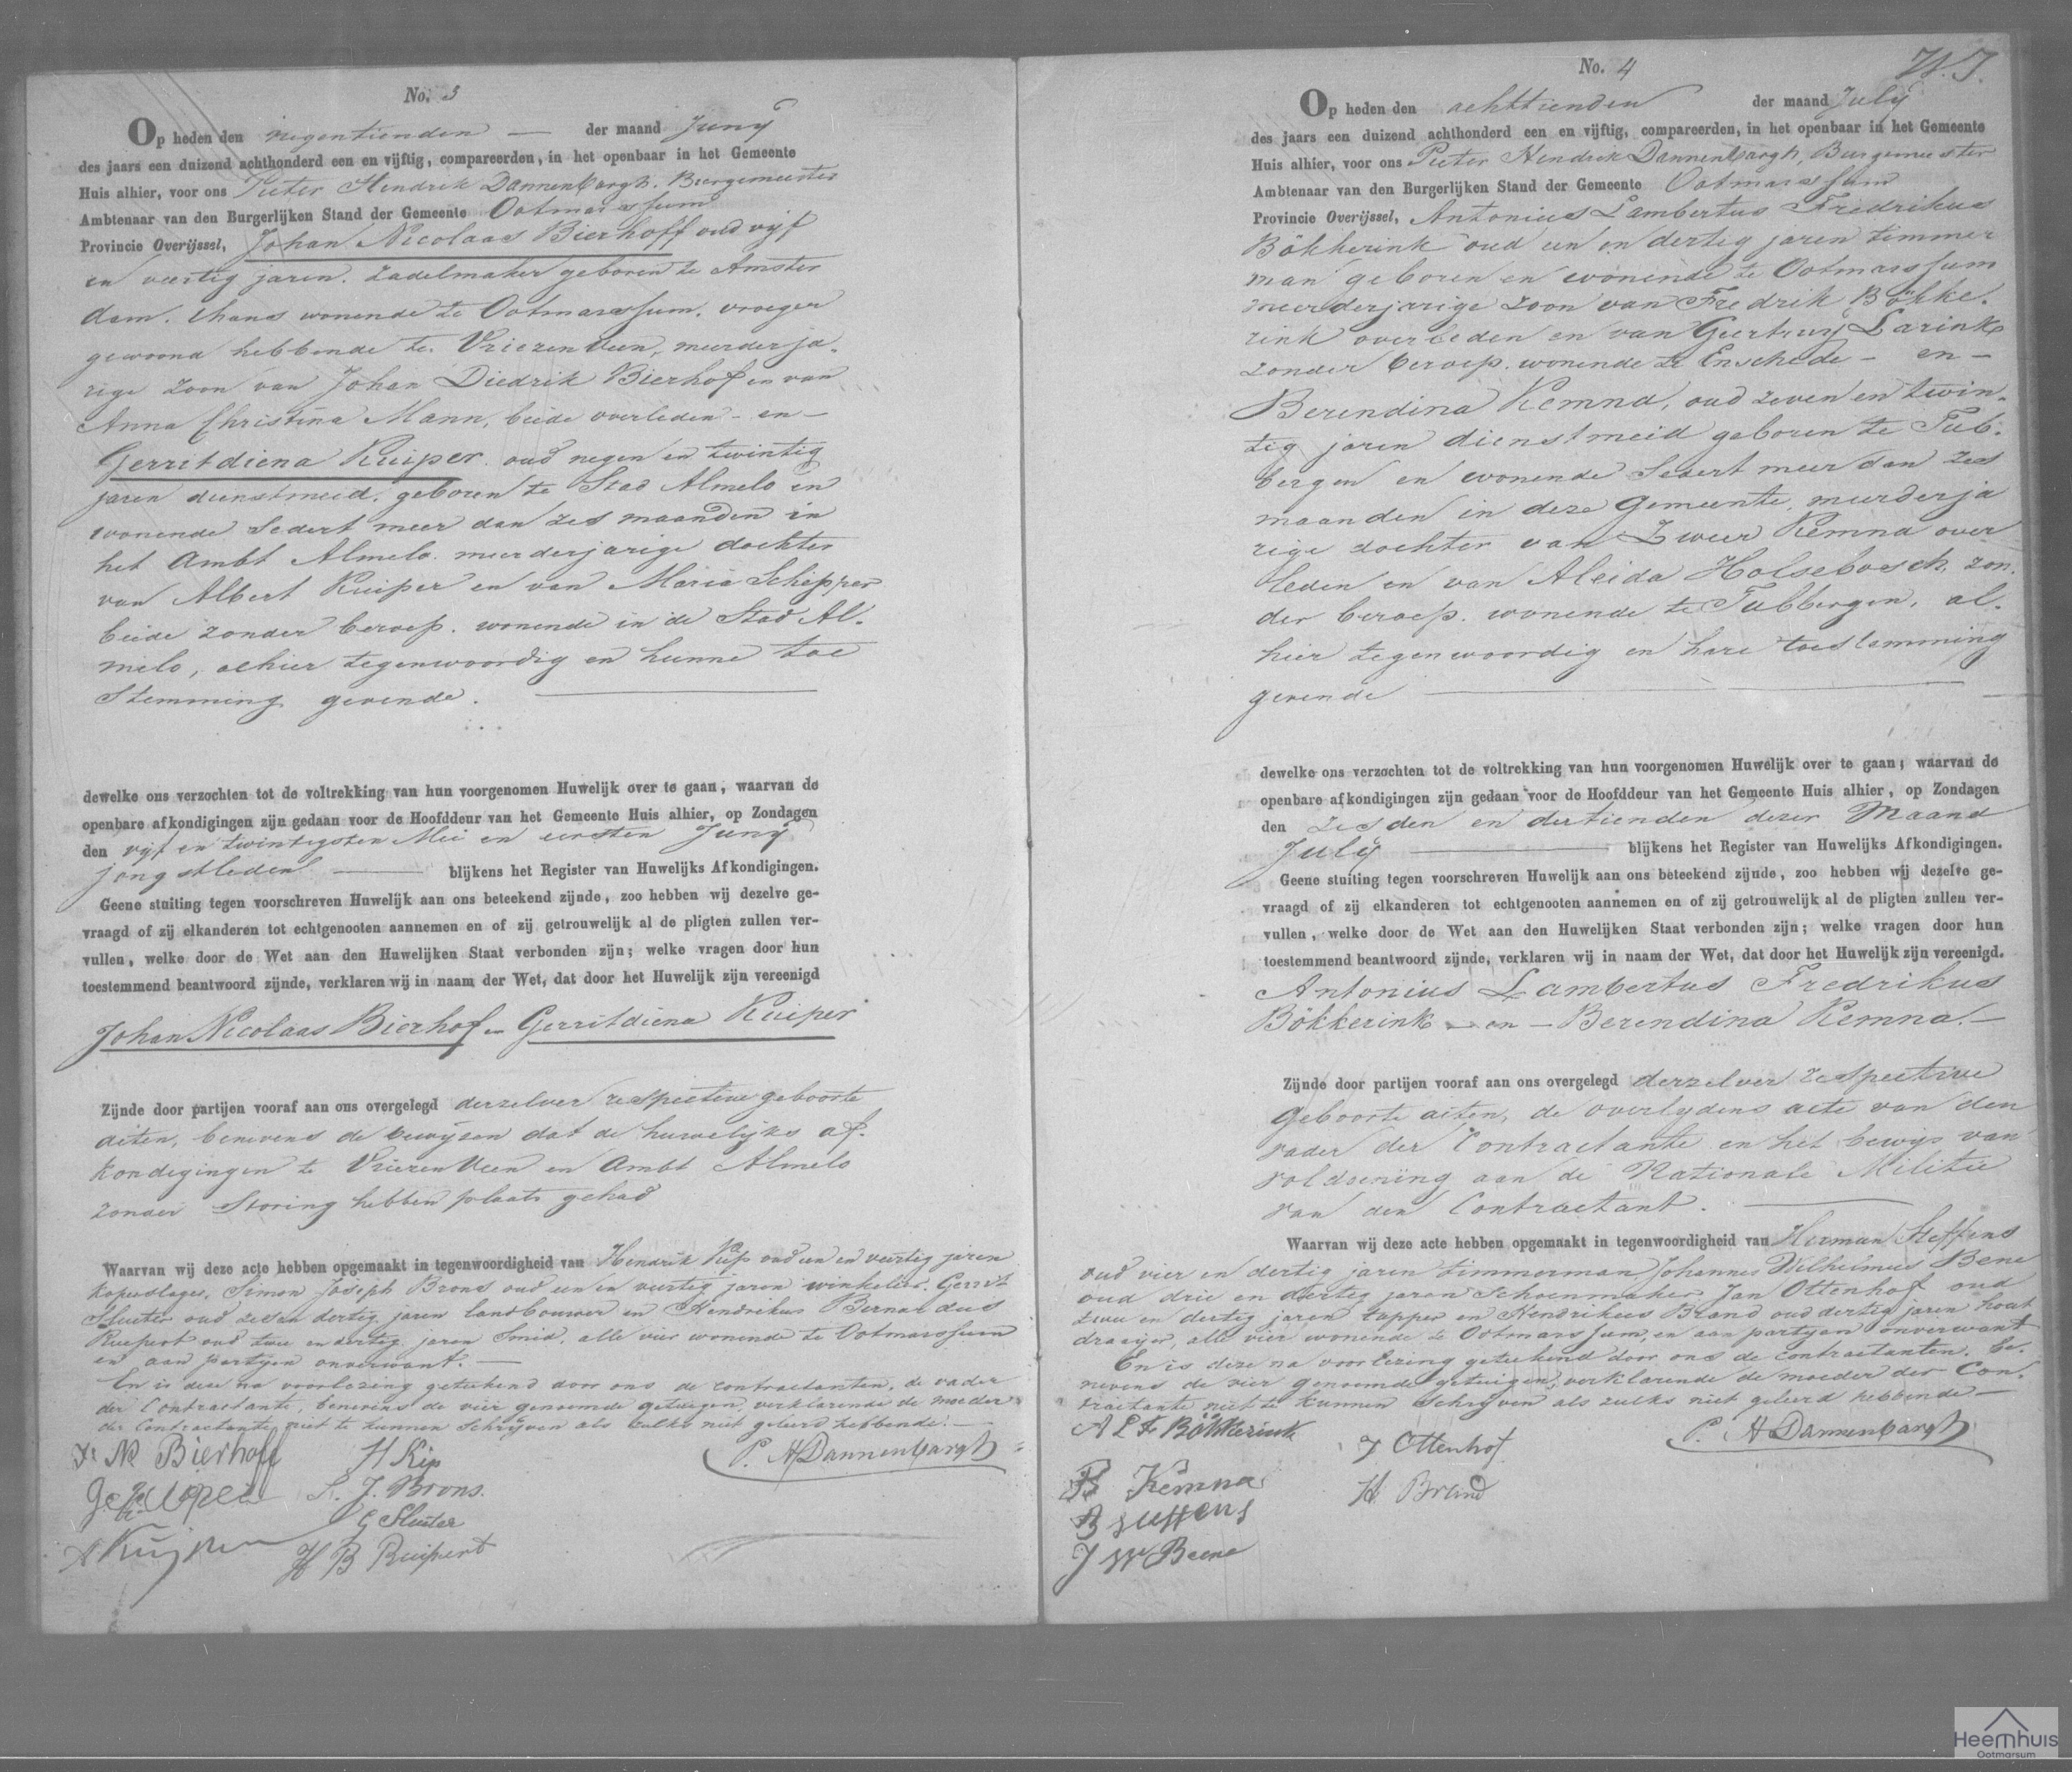 No. 3
Op heden den negentienden — der maand Juny
des jaars een duizend achthonderd een en vijftig, compareerden, in het openbaar in het Gemeente
Huis alhier, voor ons Pieter Hendrik Dannenbargh. Burgemeester
Ambtenaar van den Burgerlijken Stand der Gemeente Ootmarssum
Provincie Overijssel, Johan Nicolaas Bierhoff oud vijf
en veertig jaren. zadelmaker geboren te Amster
dam. thans wonende te Ootmarssum. vroeger
gewoond hebbende te Vriezenveen, meerderja-
rige zoon van Johan Diedrik Bierhof en van
Anna Christina Mann, beide overleden - en -
Gerritdiena Kuiper oud negen en twintig
jaren dienstmeid, geboren te Stad Almelo en
wonende sedert meer dan zes maanden in
het Ambt Almelo meerderjarige dochter
van Albert Kuiper en van Maria Schipper
beide zonder beroep. wonende in de Stad Al-
melo, alhier tegenwoordig en hunne toe
stemming gevende.
dewelke ons verzochten tot de voltrekking van hun voorgenomen Huwelijk over te gaan, waarvan de
openbare afkondigingen zijn gedaan voor de Hoofddeur van het Gemeente Huis alhier, op Zondagen
den vijf en twintigsten Mei en eersten Juny
jongstleden — blijkens het Register van Huwelijks Afkondigingen.
Geene stuiting tegen voorschreven Huwelijk aan ons beteekend zijnde, zoo hebben wij dezelve ge-
vraagd of zij elkanderen tot echtgenooten aannemen en of zij getrouwelijk al de pligten zullen ver-
vullen, welke door de Wet aan den Huwelijken Staat verbonden zijn; welke vragen door hun
toestemmend beantwoord zijnde, verklaren wij in naam der Wet, dat door het Huwelijk zijn vereenigd
Johan Nicolaas Bierhof en Gerritdiena Kuiper
Zijnde door partijen vooraf aan ons overgelegd derzelver respective geboorte
akten, benevens de bewijsen dat de huwelijks af-
kondigingen te Vriezenveen en Ambt Almelo
zonder Storing hebben plaats gehad
Waarvan wij deze acte hebben opgemaakt in tegenwoordigheid van Hendrik Kip oud een en veertig jaren
koperslager, Simon Joseph Brons oud een en veertig jaren winkelier. Gerrit
Sluiter oud zes en dertig jaren landbouwer en Hendrikus Bernardus
Ruepert oud twee en dertig jaren Smid, alle vier wonende te Ootmarssum
en aan partijen onverwant. —
En is deze na voorlezing geteekend door ons de contractanten, de vader
der Contractante, benevens de vier genoemde getuigen, verklarende de moeder
der Contractante niet te kunnen schrijven als zulks niet geleerd hebbende. —
J. N. Bierhoff H Kip P. H Dannenbargh
S. J. Brons.
G Sluiter
A Kuijper H B Ruipert
No. 4
Op heden den achttienden der maand July
des jaars een duizend achthonderd een en vijftig, compareerden, in het openbaar in het Gemeente
Huis alhier, voor ons Pieter Hendrik Dannenbargh, Burgemeester
Ambtenaar van den Burgerlijken Stand der Gemeente Ootmarssum
Provincie Overijssel, Antonius Lambertus Fredrikus
Bökkerink oud een en dertig jaren timmer
man geboren en wonende te Ootmarssum
meerderjarige zoon van Fredrik Bökke-
rink overleden en van Geertruy Larink
zonder beroep. wonende te Enschede - en -
Berendina Kemna, oud zeven en twin-
tig jaren dienstmeid geboren te Tub-
bergen en wonende Sedert meer dan zes
maanden in deze Gemeente, meerderja
rige dochter van Zweer Kemna over
leden en van Aleida Holsebosch, zon-
der beroep. wonende te Tubbergen, al-
hier tegenwoordig en hare toestemming
gevende
dewelke ons verzochten tot de voltrekking van hun voorgenomen Huwelijk over te gaan; waarvan de
openbare afkondigingen zijn gedaan voor de Hoofddeur van het Gemeente Huis alhier, op Zondagen
den zesden en dertienden dezer Maand
July — blijkens het Register van Huwelijks Afkondigingen.
Geene stuiting tegen voorschreven Huwelijk aan ons beteekend zijnde, zoo hebben wij dezelve ge-
vraagd of zij elkanderen tot echtgenooten aannemen en of zij getrouwelijk al de pligten zullen ver-
vullen, welke door de Wet aan den Huwelijken Staat verbonden zijn; welke vragen door hun
toestemmend beantwoord zijnde, verklaren wij in naam der Wet, dat door het Huwelijk zijn vereenigd.
Antonius Lambertus Fredrikus
Bökkerink — en — Berendina Kemna. —
Zijnde door partijen vooraf aan ons overgelegd derzelver respective
Geboorte akten, de overlydens acte van den
vader der Contractante en het bewijs van
voldoening aan de Nationale Militie
van den Contractant.
Waarvan wij deze acte hebben opgemaakt in tegenwoordigheid van Herman Steffens
oud vier en dertig jaren timmerman, Johannes Wilhelmus Bene
oud drie en dertig jaren Schoenmaker, Jan Ottenhof oud
twee en dertig jaren tapper en Hendrikus Brand oud dertig jaren hout
draaijer, alle vier wonende te Ootmarssum, en aan partijen onverwant
En is deze na voorlezing geteekend door ons de contractanten. be-
nevens de vier genoemde getuigen, verklarende de moeder der Con-
tractante niet te kunnen Schrijven als zulks niet geleerd hebbende —
A L F Bökkerink J Ottenhof P. H Dannenbargh
B Kemna H Brand
J W Beene
Heemhuis
Ootmarsum